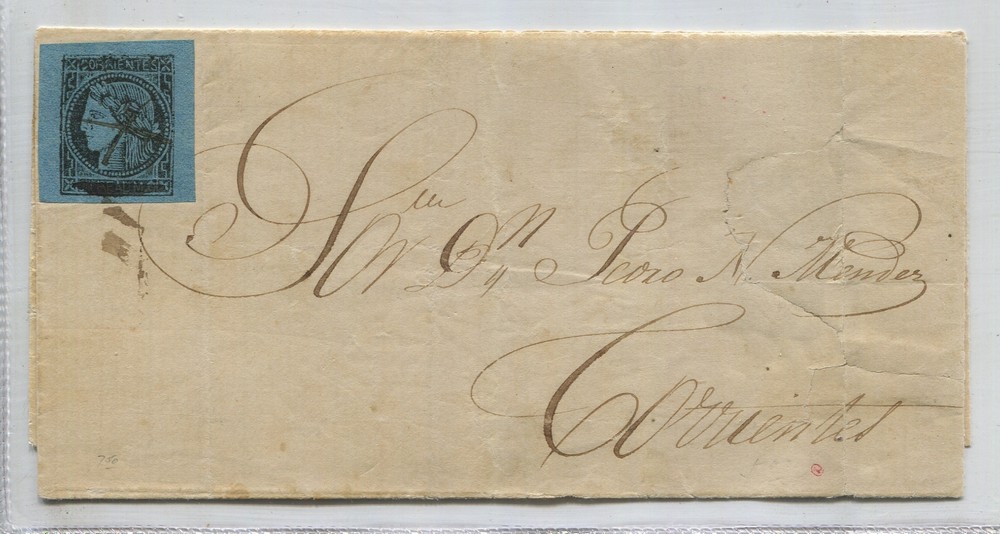 CORRIENTES
Sr Dn Pedro N. Mendez
Corrientes
750